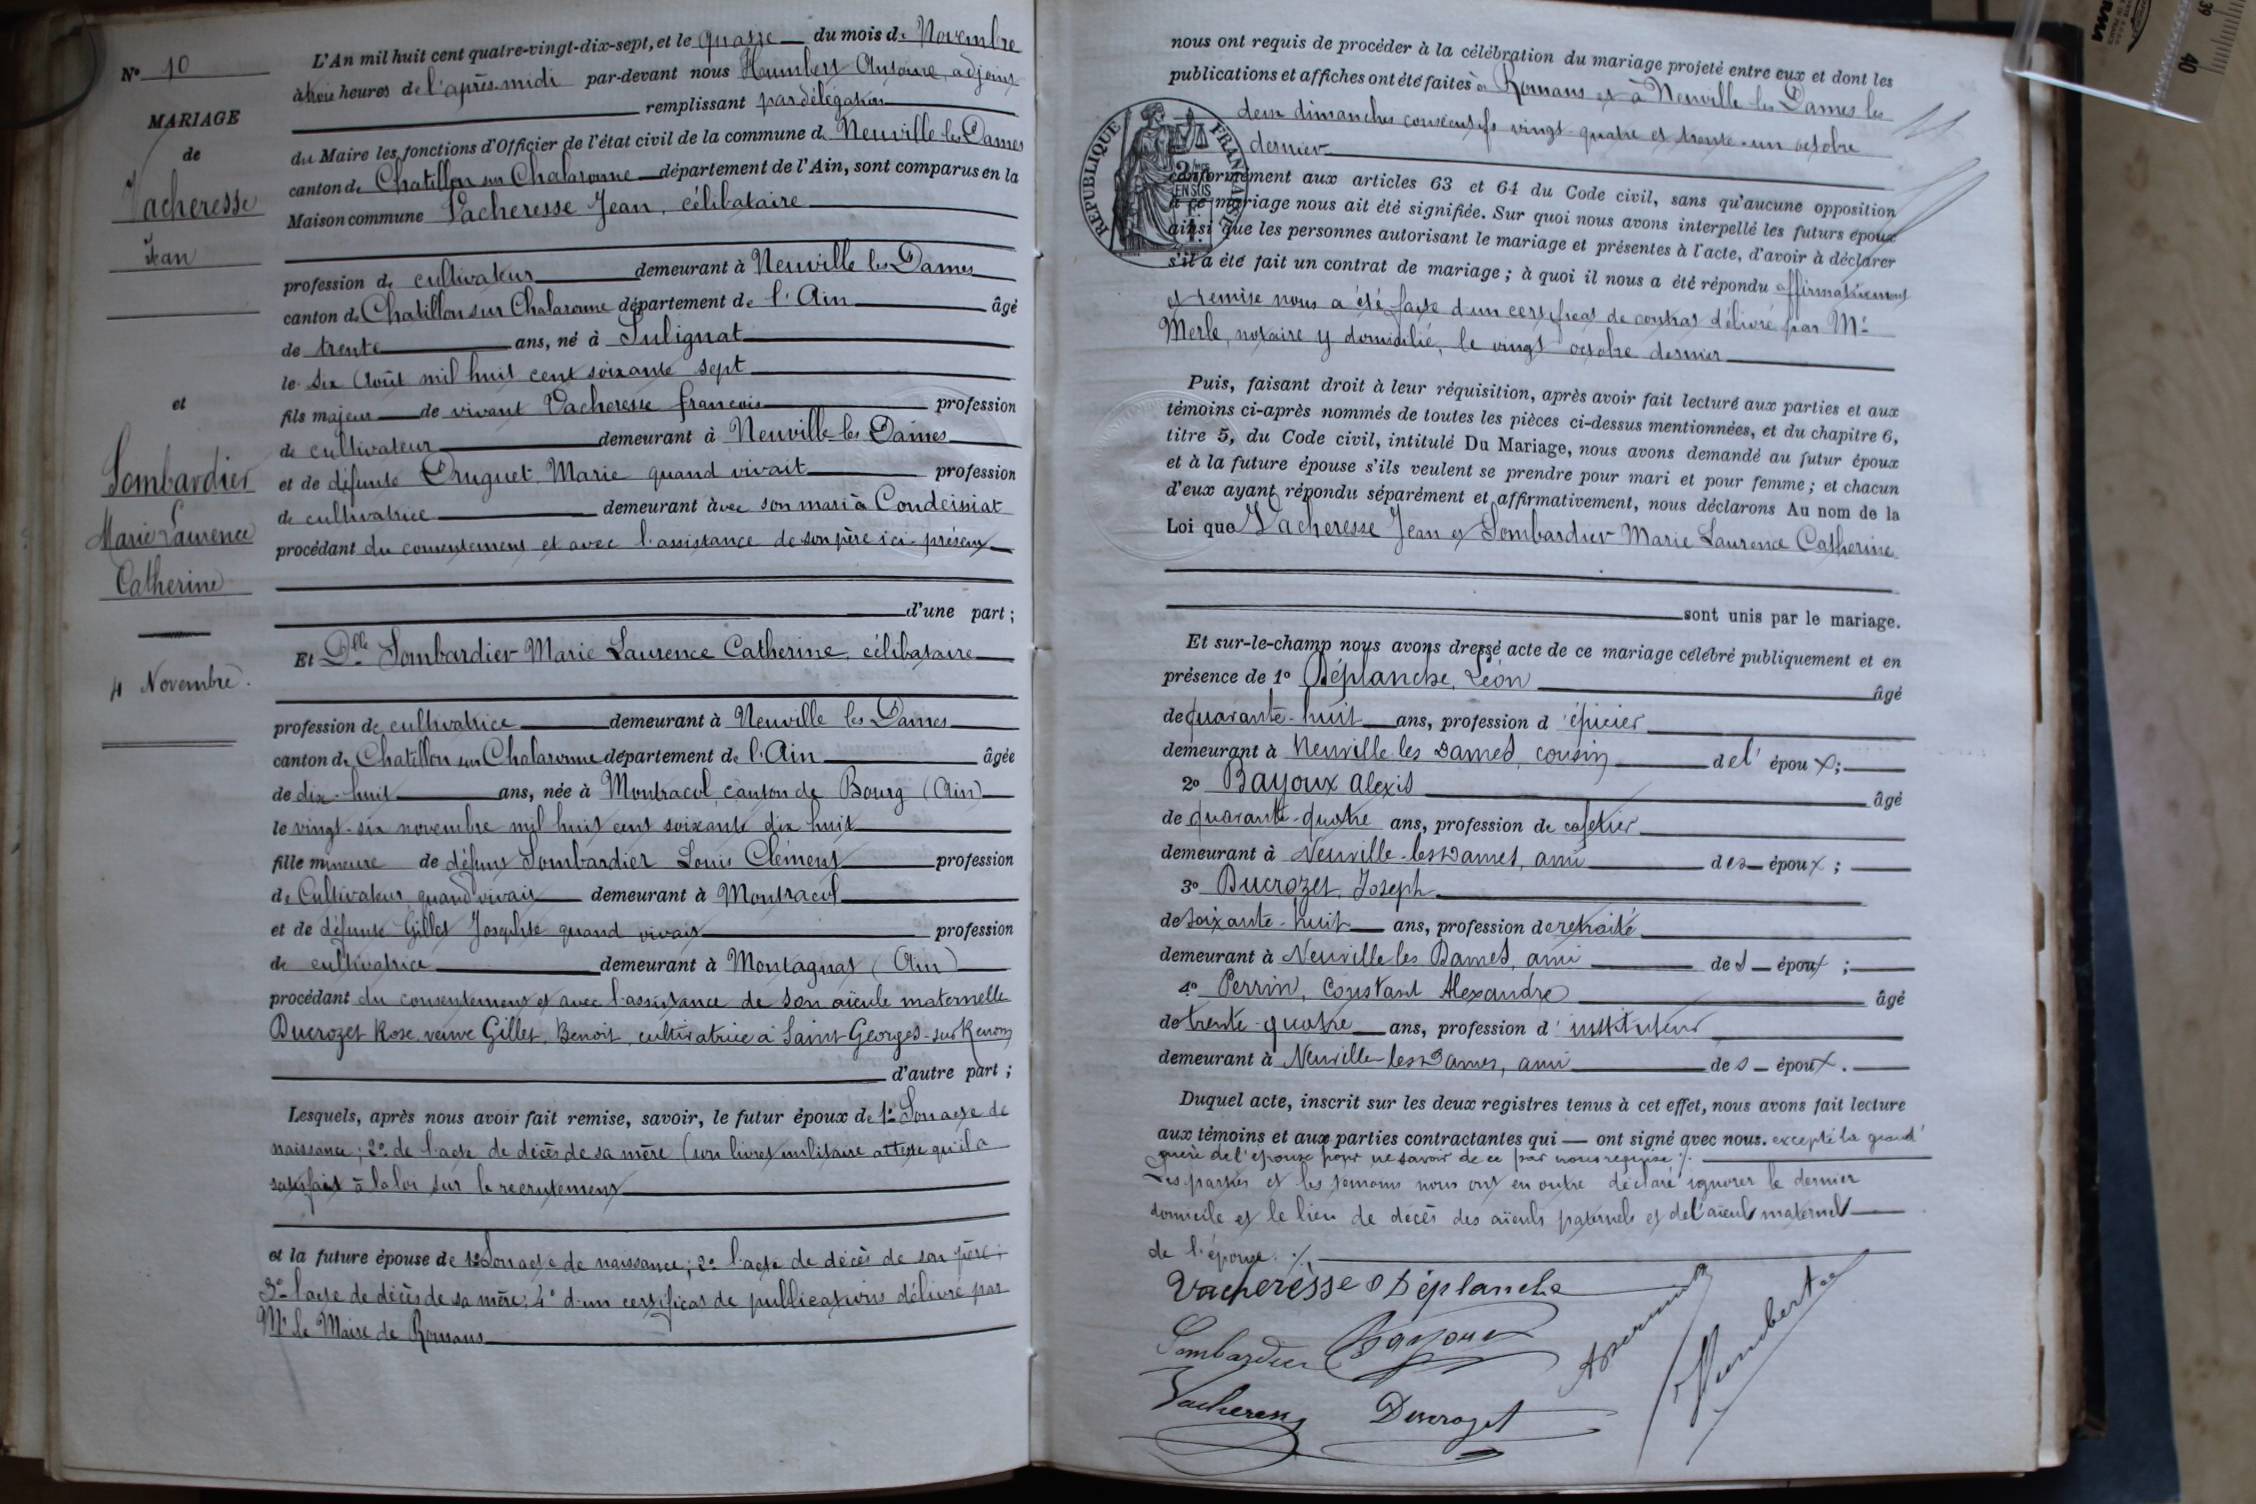 N° 10
MARIAGE
de
Vacheresse
Jean
et
Lombardier
Marie Laurence
Catherine
4 Novembre.
L'An mil huit cent quatre-vingt-dix-sept, et le quatre du mois de Novembre
à trois heures de l'après-midi par-devant nous Humbert Antoine, adjoint
remplissant par délégation
du Maire les fonctions d'Officier de l'état civil de la commune de Neuville les Dames
canton de Chatillon sur Chalaronne département de l'Ain, sont comparus en la
Maison commune Vacheresse Jean, célibataire
profession de cultivateur demeurant à Neuville les Dames
canton de Chatillon sur Chalaronne département de l'Ain âgé
de trente ans, né à Sulignat
le six Août mil huit cent soixante sept
fils majeur de vivant Vacheresse françois profession
de cultivateur demeurant à Neuville les Dames
et de défunte Pruguet Marie quand vivait profession
de cultivatrice demeurant avec son mari à Condeissiat
procédant du consentement et avec l'assistance de son père ici présent
d'une part ;
Et Dlle Lombardier Marie Laurence Catherine, célibataire
profession de cultivatrice demeurant à Neuville les Dames
canton de Chatillon sur Chalaronne département de l'Ain âgée
de dix-huit ans, née à Montracol, canton de Bourg (Ain)
le vingt-six novembre mil huit cent soixante dix huit
fille mineure de défunt Lombardier Louis Clément profession
de Cultivateur quand vivait demeurant à Montracol
et de défunte Gillet Josephte quand vivait profession
de cultivatrice demeurant à Montagnat (Ain)
procédant du consentement et avec l'assistance de son aïeule maternelle
Ducrozet Rose veuve Gillet, Benoit, cultivatrice à Saint-Georges-sur Renom
d'autre part ;
Lesquels, après nous avoir fait remise, savoir, le futur époux de 1° Son acte de
naissance ; 2° de l'acte de décès de sa mère (son livret militaire atteste qu'il a
satisfait à la loi sur le recrutement
et la future épouse de 1° Son acte de naissance ; 2° l'acte de décès de son père ;
3° l'acte de décès de sa mère ; 4° d'un certificat de publications délivré par
Mr le Maire de Romans
nous ont requis de procéder à la célébration du mariage projeté entre eux et dont les
publications et affiches ont été faites à Romans et à Neuville les Dames les
deux dimanches consécutifs vingt-quatre et trente-un octobre
dernier
RÉPUBLIQUE FRANÇAISE
2/10ES
EN SUS
conformément aux articles 63 et 64 du Code civil, sans qu'aucune opposition
à ce mariage nous ait été signifiée. Sur quoi nous avons interpellé les futurs époux
ainsi que les personnes autorisant le mariage et présentes à l'acte, d'avoir à déclarer
s'il a été fait un contrat de mariage ; à quoi il nous a été répondu affirmativement
et remise nous a été faite d'un certificat de contrat délivré par Me
Merle, notaire y domicilié, le vingt octobre dernier
Puis, faisant droit à leur réquisition, après avoir fait lecture aux parties et aux
témoins ci-après nommés de toutes les pièces ci-dessus mentionnées, et du chapitre 6,
titre 5, du Code civil, intitulé Du Mariage, nous avons demandé au futur époux
et à la future épouse s'ils veulent se prendre pour mari et pour femme ; et chacun
d'eux ayant répondu séparément et affirmativement, nous déclarons Au nom de la
Loi que Vacheresse Jean et Lombardier Marie Laurence Catherine
sont unis par le mariage.
Et sur-le-champ nous avons dressé acte de ce mariage célébré publiquement et en
présence de 1° Déplanche, Léon âgé
de quarante-huit ans, profession d'épicier
demeurant à Neuville les Dames, cousin de l'époux ;
2° Bayoux Alexis âgé
de quarante-quatre ans, profession de cafetier
demeurant à Neuville-les Dames, ami des époux ;
3° Ducrozet Joseph
de soixante-huit ans, profession de retraité
demeurant à Neuville les Dames, ami des époux ;
4° Perrin, Constant Alexandre âgé
de trente-quatre ans, profession d'instituteur
demeurant à Neuville-les Dames, ami des époux.
Duquel acte, inscrit sur les deux registres tenus à cet effet, nous avons fait lecture
aux témoins et aux parties contractantes qui ont signé avec nous. excepté la grand'
mère de l'épouse pour ne savoir de ce par nous requise ./.
Les parties et les témoins nous ont en outre déclaré ignorer le dernier
domicile et le lieu de décès des aïeuls paternels et de l'aïeul maternel
de l'épouse ./.
Vacheresse Déplanche
Lombardier Bayoux
Aperrin
Humbert A
Vacheresse Ducrozet
39
40